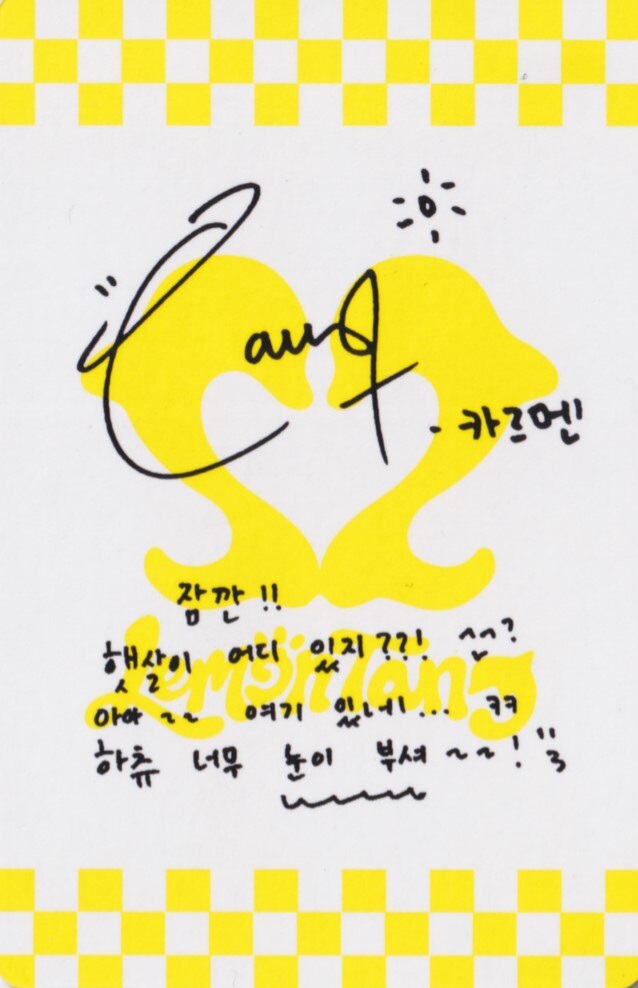 - 카르멘
잠깐!!
햇살이 어디 있지??! ^^?
아아~~ 여기 있네!... ㅋㅋ
하츄 너무 눈이 부셔~~!
Lemon Tang